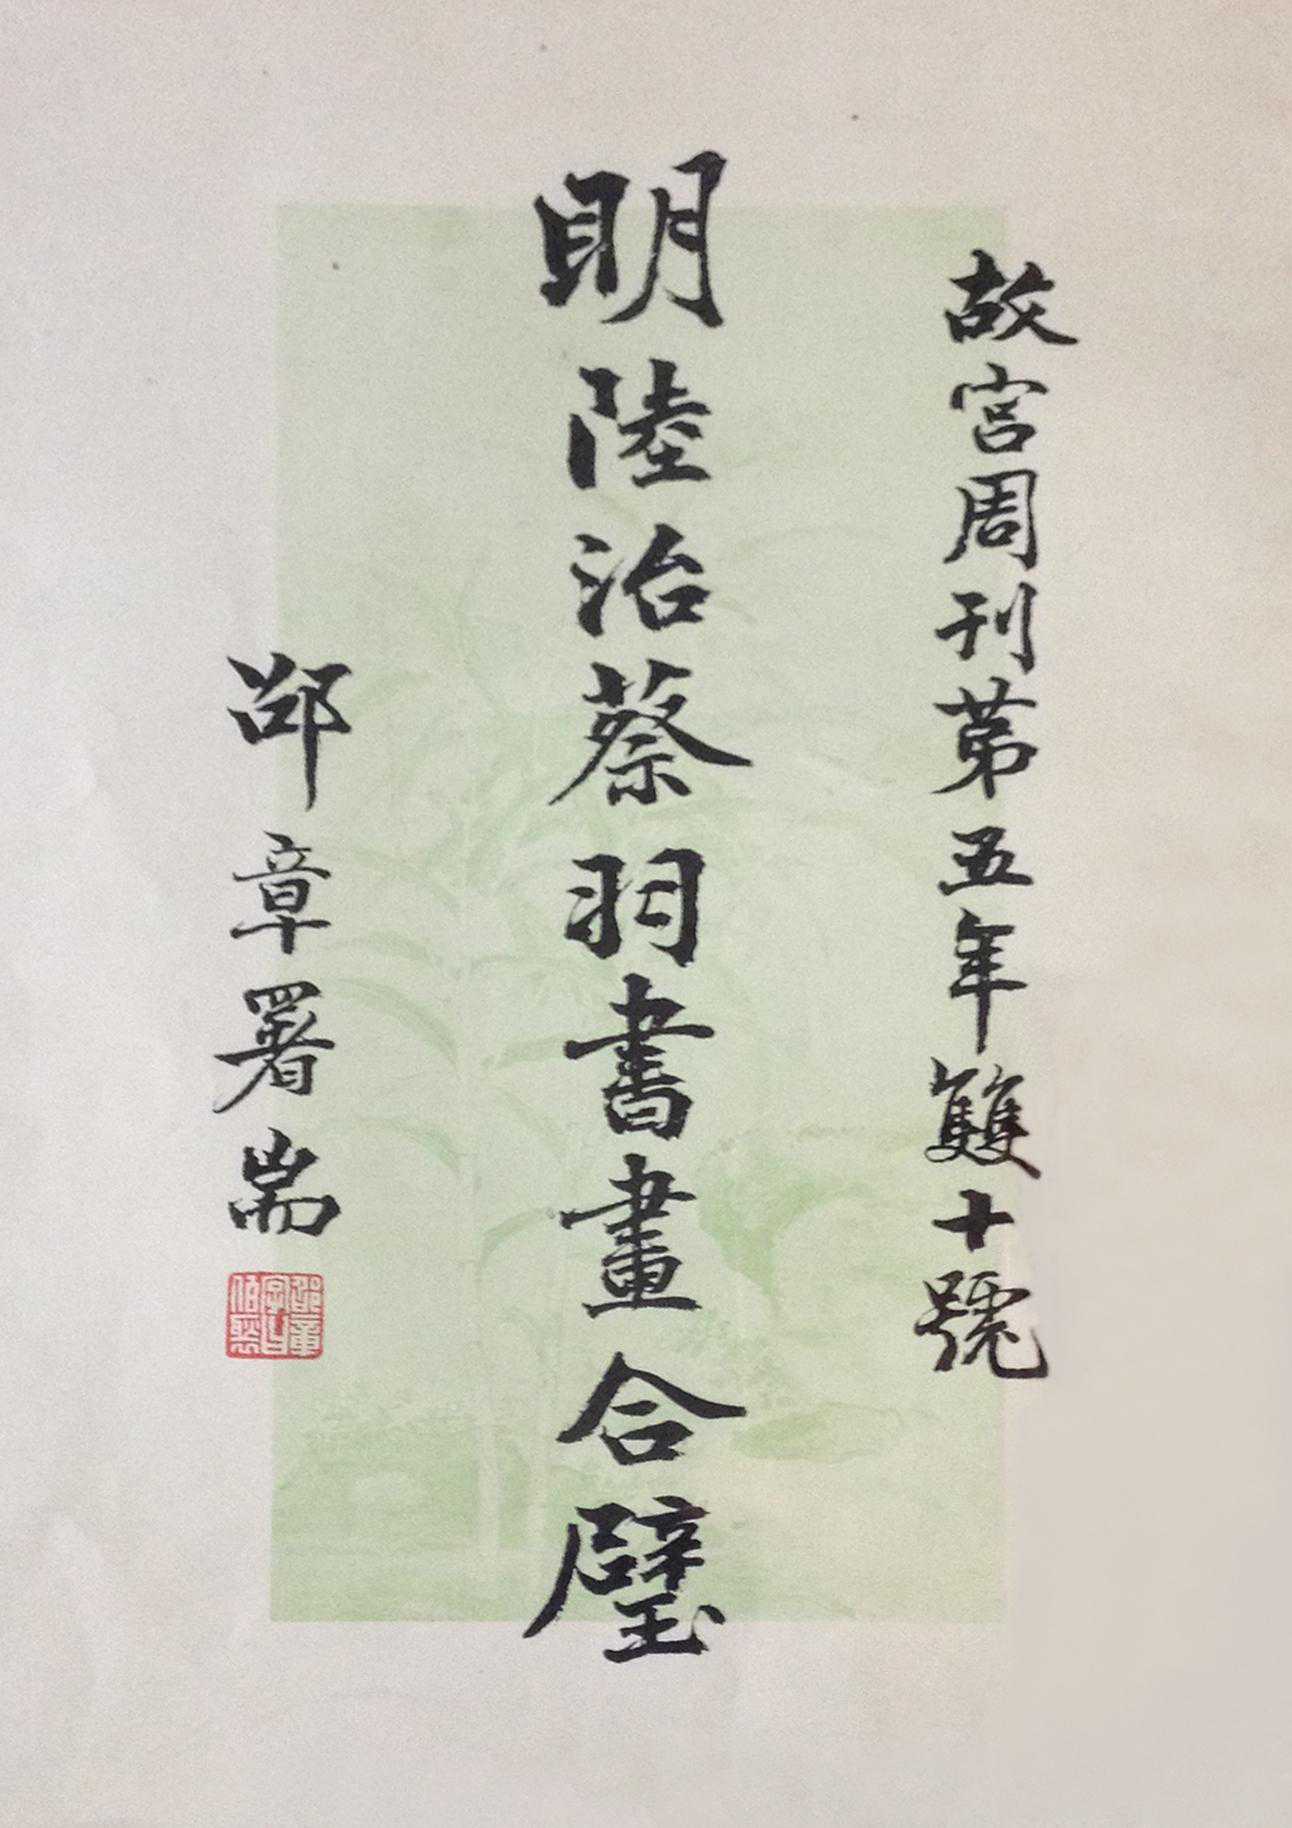 故宮周刊第五年雙十號
明陸治蔡羽書畫合璧
邵章署耑
邵章字曰伯炯